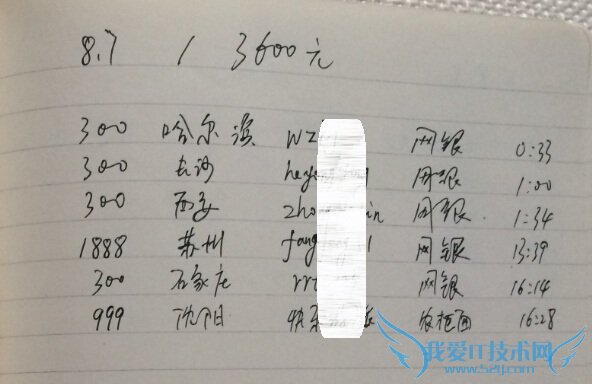 8.7 1 3600元
300 哈尔滨 wz 网银 0:33
300 长沙 heye 网银 1:00
300 西安 zho in 网银 1:34
1888 苏州 fang l 网银 13:39
300 石家庄 rr 网银 16:14
999 沈阳 快乐 16:28
我爱IT技术网
www.52ij.com